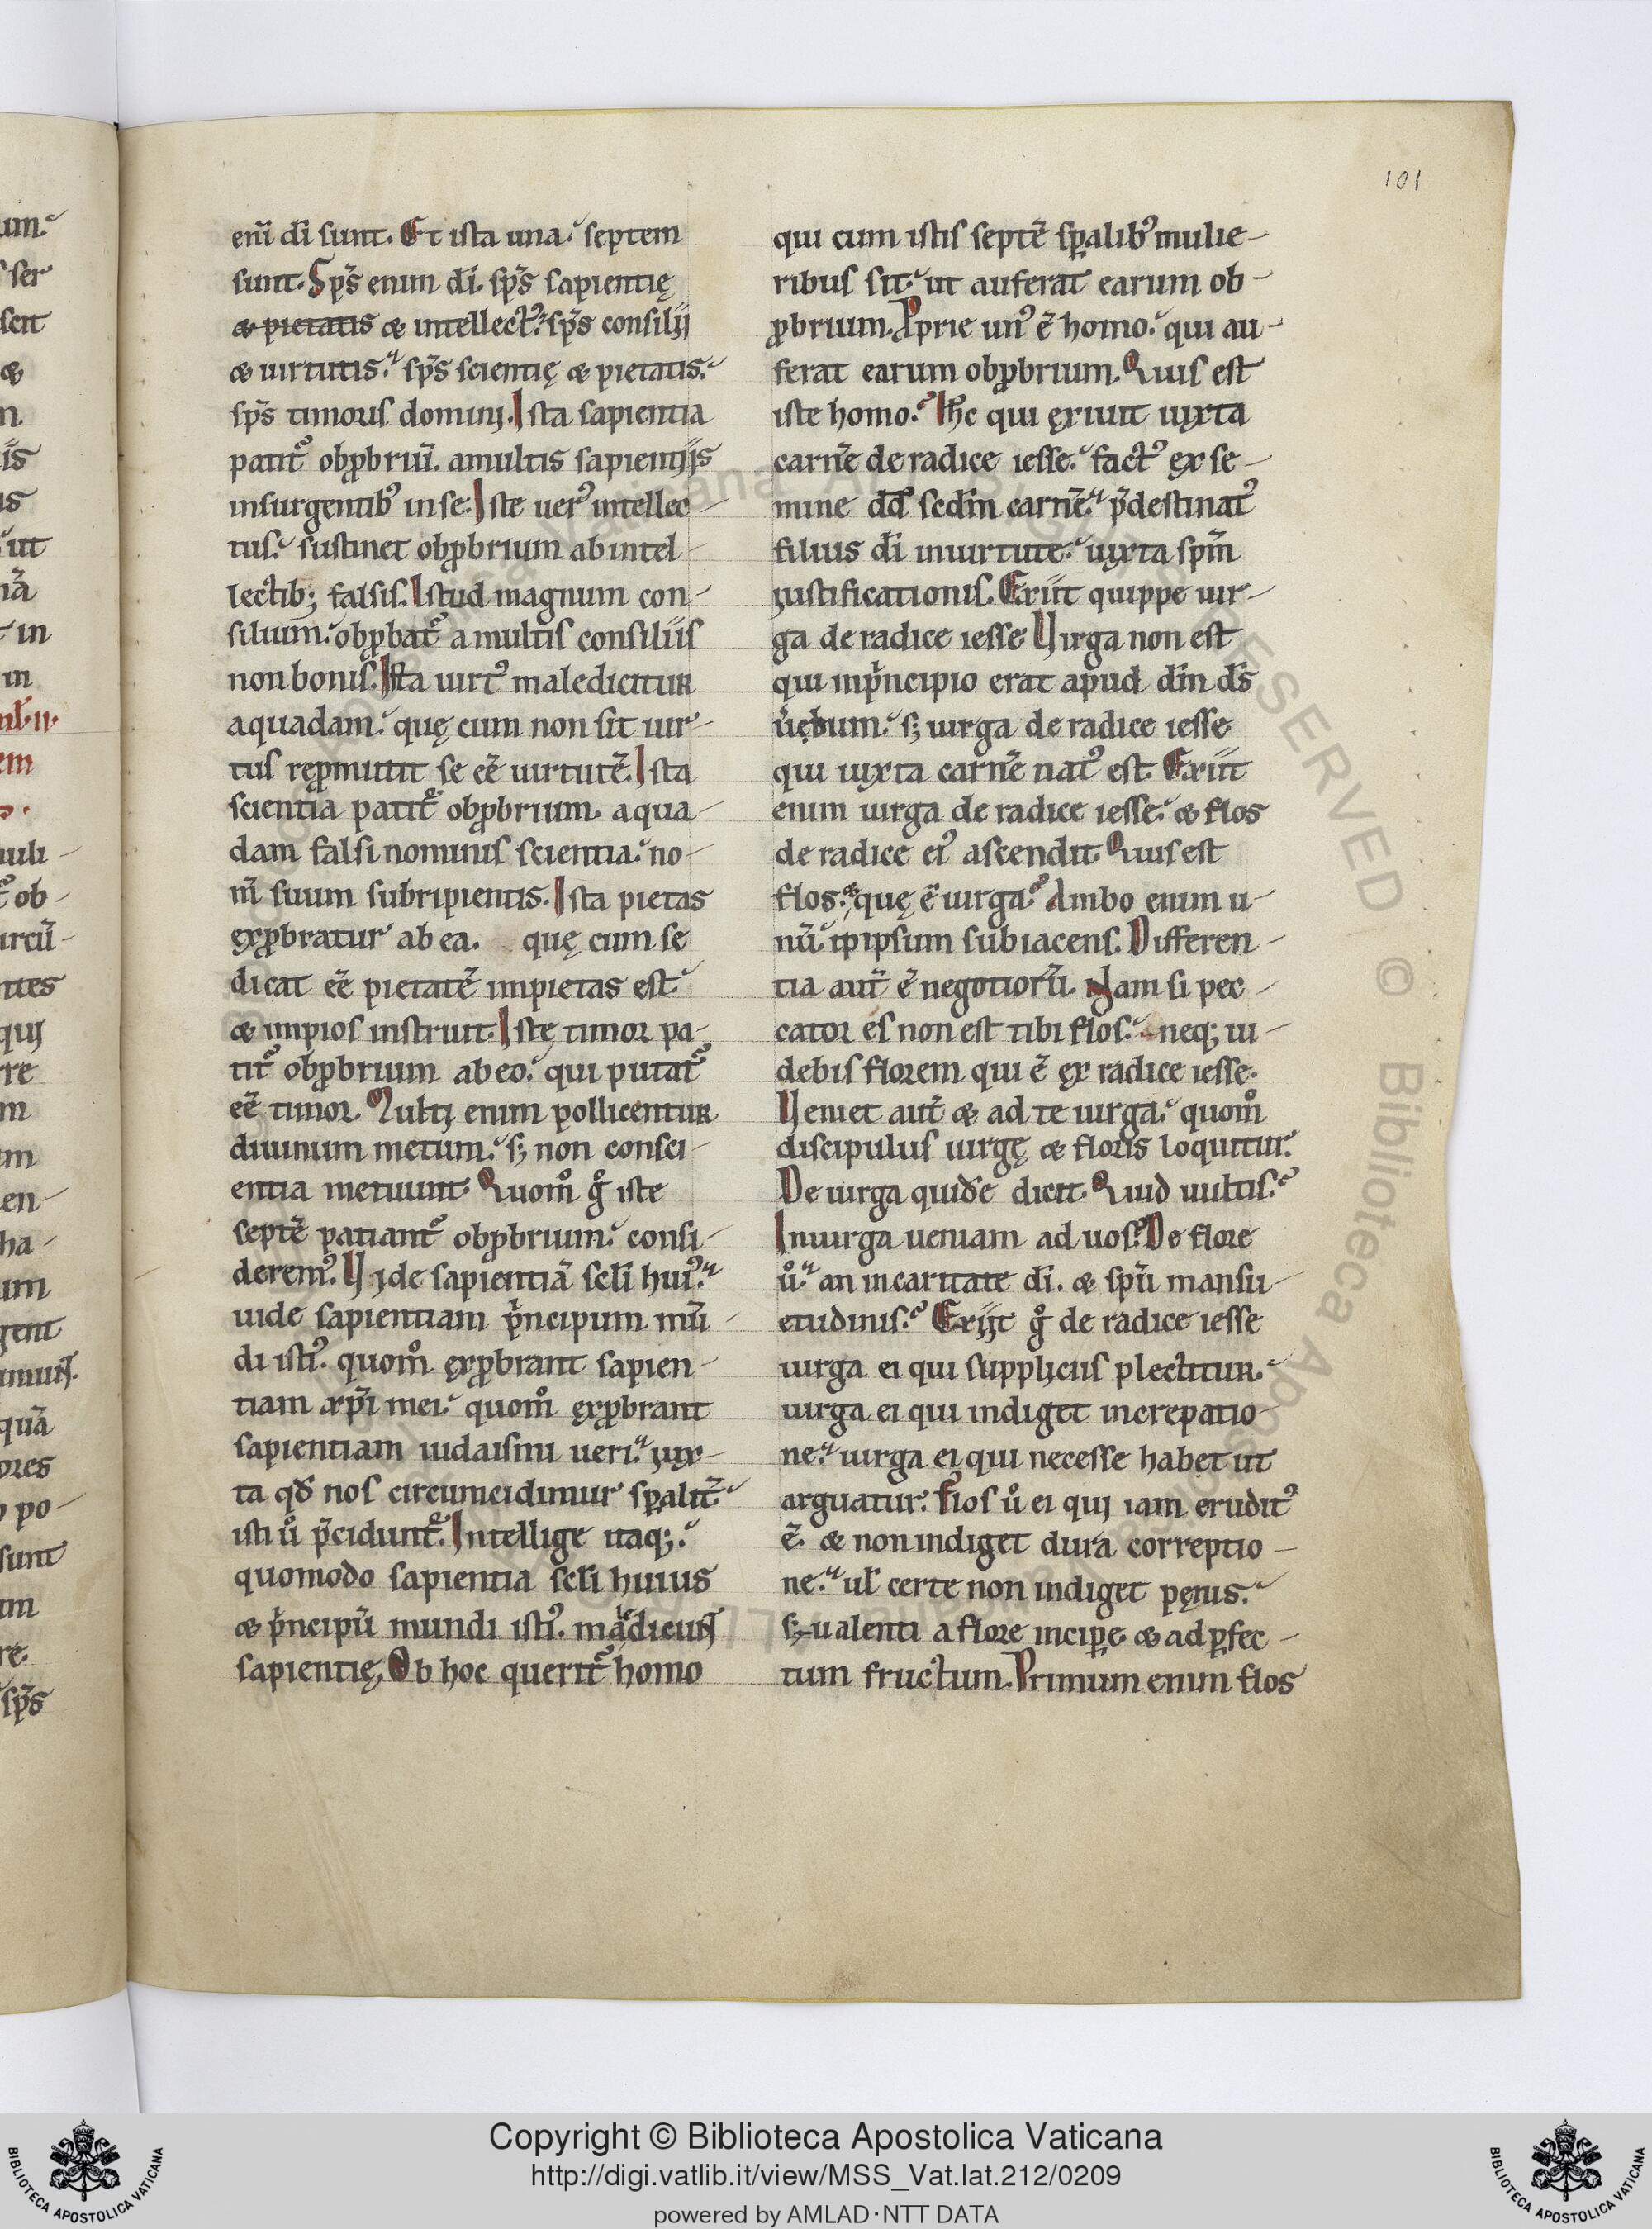 101
eni̅ di̅ sunt. Et ista una. septem
sunt. Sp̅s enim di̅. sp̅s sapientię
& pietatis & intellectꝰ. sp̅s consilij
& uirtutis. sp̅s scientię & pietatis.
sp̅s timoris domini. Ista sapientia
patit᷑ obꝓbriu̅. amultis sapientijs
insurgentibꝰ in se. Iste uerꝰ intellec-
tus. sustinet obꝓbrium ab intel-
lectib; falsis. Istud magnum con-
silium. obꝓbat᷑ a multis consiliis
non bonis. Ista uirtꝰ maledicitur
aquadam. quę cum non sit uir-
tus rępromittit se ee̅ uirtute̅. Ista
scientia patit᷑ obꝓbrium. a qua-
dam falsi nominis scientia. no-
m̅ suum subripientis. Ista pietas
exꝓbratur ab ea. quę cum se
dicat ee̅ pietate̅ impietas est.
& impios instruit. Istę timor pa-
tit᷑ obꝓbrium ab eo. qui putat᷑
ee̅ timor. Multi enim pollicentur
diuinum metum. s; non consci-
entia metuunt. Quom̊ g̊ iste
septe̅ patiant᷑ obꝓbrium. consi-
deremꝰ. Vide sapientia̅ scl̅i huiꝰ.
uide sapientiam pͥncipum mu̅-
di istiꝰ. quom̊ exꝓbrant sapien-
tiam xp̅i mei. quom̊ exꝓbrant
sapientiam iudaismi ueri. iux-
ta qđ nos circumcidimur sp̅alit̅.
isti ů p̅cidunt᷑. Intellige itaq;.
quomodo sapientia scl̅i huius
& pͥncipu̅ mundi istiꝰ. maledicunt
sapientię. Ob hoc querit᷑ homo
qui cum istis septe̅ sp̅alibꝰ mulie-
ribus sit. ut auferat earum ob-
ꝓbrium. Ꝓprie unꝰ e̅ homo. qui au-
ferat earum obꝓbrium. Quis est
iste homo. Ih̅c qui exiuit iuxta
carne̅ de radice iesse. factꝰ ex se-
mine dd̅ scđm carne̅. p̅destinatꝰ
filius di̅ inuirtute. iuxta sp̅m
iustificationis. Exiit quippe uir-
ga de radice iesse Virga non est
qui inpͥncipio erat apud dm̅ ds̅
uębum. s; uirga de radice iesse
qui iuxta carne̅ natꝰ est. Exiit
enim uirga de radice iesse. & flos
de radice eiꝰ ascendit. Quis est
flos. & quę e̅ uirga. Ambo enim u-
nu̅. ipipsum subiacens. Differen-
tia aut̅ e̅ negotioru̅. Nam si pec-
cator es non est tibi flos. neq; ui-
debis florem qui e̅ ex radice iesse.
Veniet aut̅ & ad te uirga. quom̊
discipulus uirgę & floris loquitur.
De uirga quide̅ dicit. Quid uultis.
Inuirga ueniam ad uos. De flore
ů. an incaritate di̅. & spu̅ mansu-
etudinis. Exijt g̊ de radice iesse
uirga ei qui supplicijs plectitur.
uirga ei qui indiget increpatio-
ne. uirga ei qui necesse habet ut
arguatur. Flos ů ei qui iam eruditꝰ
e̅. & non indiget dura correptio-
ne. ul̅ certe non indiget penis.
s; ualenti a flore inciꝑe & ad ꝑfec-
tum fructum. Primum enim flos
Copyright © Biblioteca Apostolica Vaticana
http://digi.vatlib.it/view/MSS_Vat.lat.212/0209
powered by AMLAD·NTT DATA